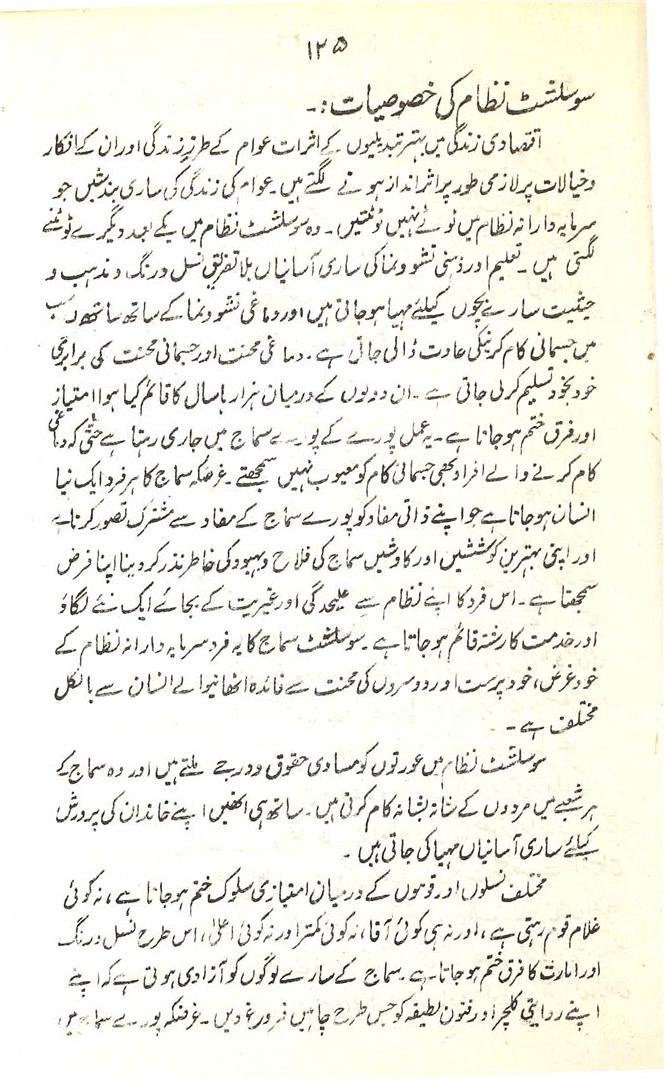 ۱۲۵
سوسلشٹ نظام کی خصوصیات:۔
اقتصادی زندگی میں بہتر تبدیلیوں کے اثرات عوام کے طرز زندگی اور ان کے افکار
و خیالات پر لازمی طور پر اثر انداز ہونے لگتے ہیں۔ عوام کی زندگی کی ساری بندشیں جو
سرمایہ دارانہ نظام میں توڑے نہیں ٹوٹتیں۔ وہ سوسلشٹ نظام میں یکے بعد دیگرے ٹوٹنے
لگتی ہیں۔ تعلیم اور ذہنی نشوونما کی ساری آسانیاں بلا تفریق نسل و رنگ و مذہب و
حیثیت سارے بچوں کیلئے مہیا ہو جاتی ہیں اور دماغی نشوونما کے ساتھ ساتھ سب
میں جسمانی کام کرنیکی عادت ڈالی جاتی ہے۔ دماغی محنت اور جسمانی محنت کی برابری
خود بخود تسلیم کر لی جاتی ہے۔ ان دونوں کے درمیان ہزارہا سال کا قائم کیا ہوا امتیاز
اور فرق ختم ہو جاتا ہے۔ یہ عمل پورے کے پورے سماج میں جاری رہتا ہے حتٰی کہ دماغی
کام کرنے والے افراد بھی جسمانی کام کو معیوب نہیں سمجھتے۔ غرضکہ سماج کا ہر فرد ایک نیا
انسان ہو جاتا ہے جو اپنے ذاتی مفاد کو پورے سماج کے مفاد سے مشترک تصور کرتا ہے
اور اپنی بہترین کوششیں اور کاوشیں سماج کی فلاح و بہبود کی خاطر نذر کر دینا اپنا فرض
سمجھتا ہے۔ اس فرد کا اپنے نظام سے علیحدگی اور غیریت کے بجائے ایک نئے لگاؤ
اور خدمت کا رشتہ قائم ہو جاتا ہے۔ سوسلشٹ سماج کا یہ فرد سرمایہ دارانہ نظام کے
خود غرض، خود پرست اور دوسروں کی محنت سے فائدہ اٹھانیوالے انسان سے بالکل
مختلف ہے۔
سوسلشٹ نظام میں عورتوں کو مساوی حقوق و درجے ملتے ہیں اور وہ سماج کے
ہر شعبے میں مردوں کے شانہ بشانہ کام کرتی ہیں۔ ساتھ ہی انھیں اپنے خاندان کی پرورش
کیلئے ساری آسانیاں مہیا کی جاتی ہیں۔
مختلف نسلوں اور قوموں کے درمیان امتیازی سلوک ختم ہو جاتا ہے، نہ کوئی
غلام قوم رہتی ہے، اور نہ ہی کوئی آقا، نہ کوئی کمتر اور نہ کوئی اعلیٰ، اس طرح نسل و رنگ
اور امارت کا فرق ختم ہو جاتا ہے۔ سماج کے سارے لوگوں کو آزادی ہوتی ہے کہ اپنے
اپنے روایتی کلچر اور فنون لطیفہ کو جس طرح چاہیں فروغ دیں۔ غرضکہ پورے سماج میں